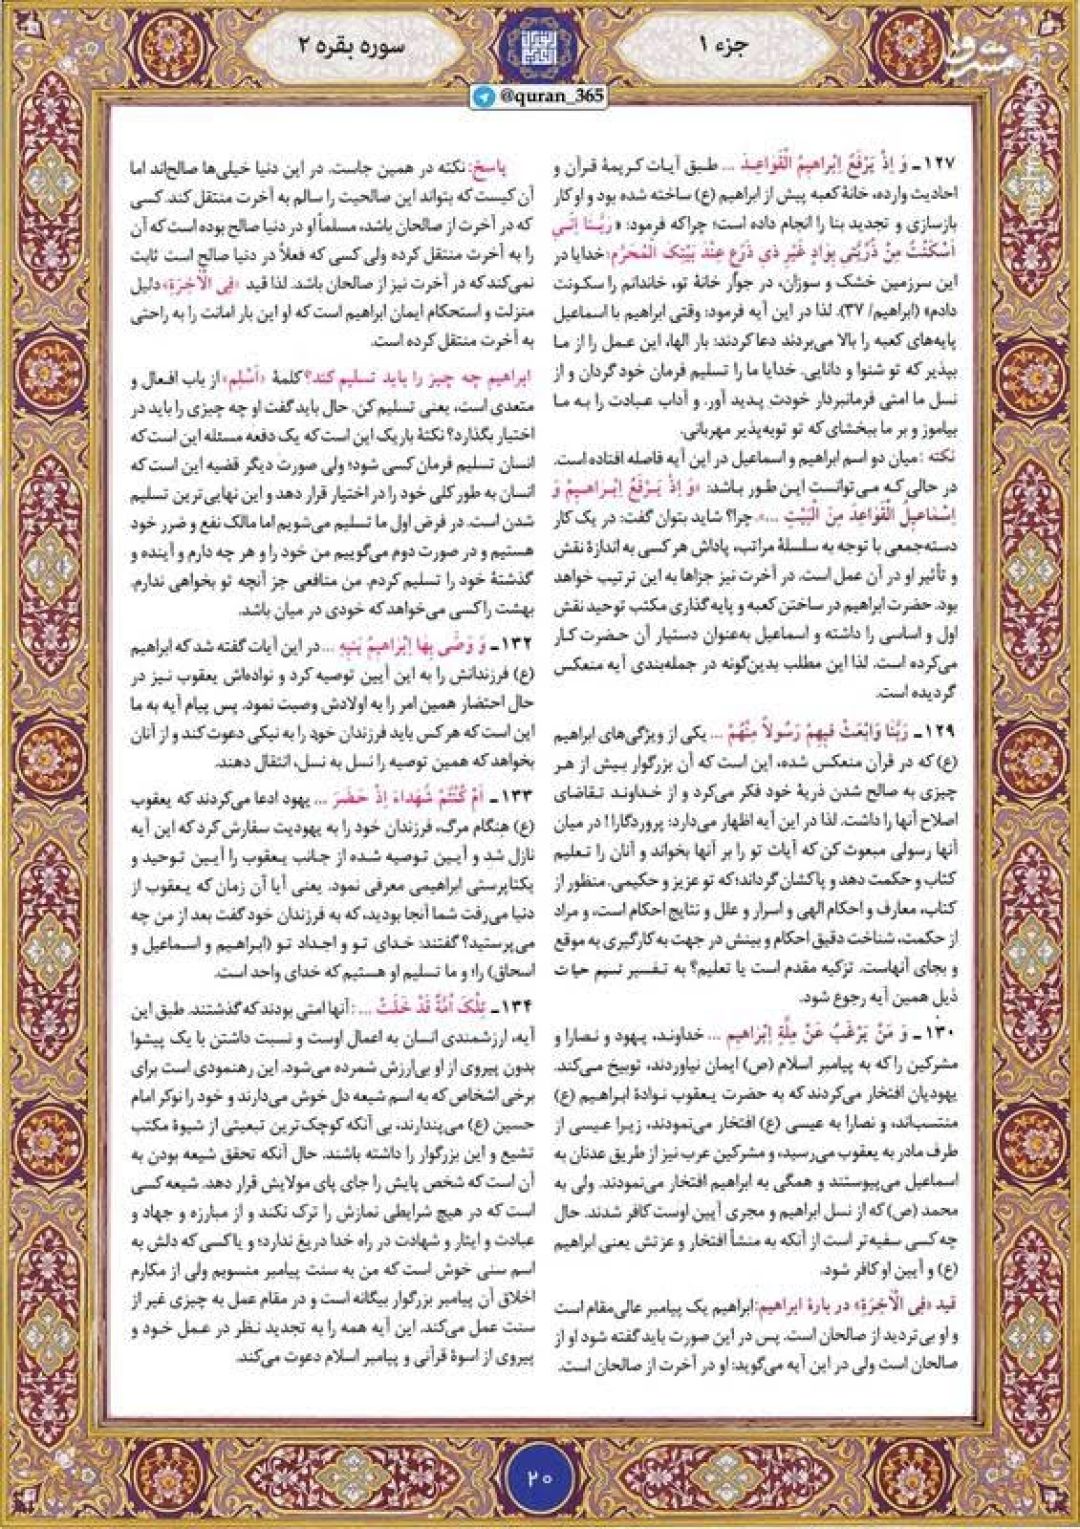 جزء ۱
سوره بقره ۲
@quran_365
مشرق
۱۲۷ـ وَ إِذْ یَرْفَعُ اِبْراهیمُ الْقَواعِدَ ... طبق آیات کریمهٔ قرآن و
احادیث وارده، خانهٔ کعبه پیش از ابراهیم (ع) ساخته شده بود و او کار
بازسازی و تجدید بنا را انجام داده است؛ چراکه فرمود: «رَبَّنا اِنّی
اَسْکَنْتُ مِنْ ذُرِّیَّتی بِوادٍ غَیْرِ ذی ذَرْعٍ عِنْدَ بَیْتِکَ الْمُحَرَّمِ؛ خدایا در
این سرزمین خشک و سوزان، در جوار خانهٔ تو، خاندانم را سکونت
دادم» (ابراهیم/ ۳۷). لذا در این آیه فرمود: وقتی ابراهیم با اسماعیل
پایه‌های کعبه را بالا می‌بردند دعا کردند: بار الها، این عمل را از ما
بپذیر که تو شنوا و دانایی. خدایا ما را تسلیم فرمان خود گردان و از
نسل ما امتی فرمانبردار خودت پدید آور. و آداب عبادت را به ما
بیاموز و بر ما ببخشای که تو توبه‌پذیر مهربانی.
نکته: میان دو اسم ابراهیم و اسماعیل در این آیه فاصله افتاده است.
در حالی که می‌توانست این طور باشد: «وَ اِذْ یَرْفَعُ اِبْراهیمُ وَ
اِسْماعیلُ الْقَواعِدَ مِنَ الْبَیْتِ ...». چرا؟ شاید بتوان گفت: در یک کار
دسته‌جمعی با توجه به سلسلهٔ مراتب، پاداش هر کسی به اندازهٔ نقش
و تأثیر او در آن عمل است. در آخرت نیز جزاها به این ترتیب خواهد
بود. حضرت ابراهیم در ساختن کعبه و پایه‌گذاری مکتب توحید نقش
اول و اساسی را داشته و اسماعیل به‌عنوان دستیار آن حضرت کار
می‌کرده است. لذا این مطلب بدین‌گونه در جمله‌بندی آیه منعکس
گردیده است.
۱۲۹ـ رَبَّنا وَابْعَثْ فیهِمْ رَسُولاً مِنْهُمْ ... یکی از ویژگی‌های ابراهیم
(ع) که در قرآن منعکس شده، این است که آن بزرگوار بیش از هر
چیزی به صالح شدن ذریهٔ خود فکر می‌کرد و از خداوند تقاضای
اصلاح آنها را داشت. لذا در این آیه اظهار می‌دارد: پروردگارا! در میان
آنها رسولی مبعوث کن که آیات تو را بر آنها بخواند و آنان را تعلیم
کتاب و حکمت دهد و پاکشان گرداند؛ که تو عزیز و حکیمی. منظور از
کتاب، معارف و احکام الهی و اسرار و علل و نتایج احکام است، و مراد
از حکمت، شناخت دقیق احکام و بینش در جهت به‌کارگیری به موقع
و بجای آنهاست. تزکیه مقدم است یا تعلیم؟ به تفسیر نسیم حیات
ذیل همین آیه رجوع شود.
۱۳۰ـ وَ مَنْ یَرْغَبُ عَنْ مِلَّةِ اِبْراهیمَ ... خداوند، یهود و نصارا و
مشرکین را که به پیامبر اسلام (ص) ایمان نیاوردند، توبیخ می‌کند.
یهودیان افتخار می‌کردند که به حضرت یعقوب نوادهٔ ابراهیم (ع)
منتسب‌اند، و نصارا به عیسی (ع) افتخار می‌نمودند، زیرا عیسی از
طرف مادر به یعقوب می‌رسید، و مشرکین عرب نیز از طریق عدنان به
اسماعیل می‌پیوستند و همگی به ابراهیم افتخار می‌نمودند. ولی به
محمد (ص) که از نسل ابراهیم و مجری آیین اوست کافر شدند. حال
چه کسی سفیه‌تر است از آنکه به منشأ افتخار و عزتش یعنی ابراهیم
(ع) و آیین او کافر شود.
قید «فِی الْآخِرَةِ» در بارهٔ ابراهیم: ابراهیم یک پیامبر عالی‌مقام است
و او بی‌تردید از صالحان است. پس در این صورت باید گفته شود او از
صالحان است ولی در این آیه می‌گوید: او در آخرت از صالحان است.
پاسخ: نکته در همین جاست. در این دنیا خیلی‌ها صالح‌اند اما
آن کیست که بتواند این صالحیت را سالم به آخرت منتقل کند. کسی
که در آخرت از صالحان باشد، مسلماً او در دنیا صالح بوده است که آن
را به آخرت منتقل کرده ولی کسی که فعلاً در دنیا صالح است ثابت
نمی‌کند که در آخرت نیز از صالحان باشد. لذا قید «فِی الْآخِرَةِ» دلیل
منزلت و استحکام ایمان ابراهیم است که او این بار امانت را به راحتی
به آخرت منتقل کرده است.
ابراهیم چه چیز را باید تسلیم کند؟ کلمهٔ «اَسْلِم» از باب افعال و
متعدی است، یعنی تسلیم کن. حال باید گفت او چه چیزی را باید در
اختیار بگذارد؟ نکتهٔ باریک این است که یک دفعه مسئله این است که
انسان تسلیم فرمان کسی شود؛ ولی صورت دیگر قضیه این است که
انسان به طور کلی خود را در اختیار قرار دهد و این نهایی‌ترین تسلیم
شدن است. در فرض اول ما تسلیم می‌شویم اما مالک نفع و ضرر خود
هستیم و در صورت دوم می‌گوییم من خود را و هر چه دارم و آینده و
گذشتهٔ خود را تسلیم کردم. من منافعی جز آنچه تو بخواهی ندارم.
بهشت را کسی می‌خواهد که خودی در میان باشد.
۱۳۲ـ وَ وَصّی بِها اِبْراهیمُ بَنیهِ ... در این آیات گفته شد که ابراهیم
(ع) فرزندانش را به این آیین توصیه کرد و نواده‌اش یعقوب نیز در
حال احتضار همین امر را به اولادش وصیت نمود. پس پیام آیه به ما
این است که هر کس باید فرزندان خود را به نیکی دعوت کند و از آنان
بخواهد که همین توصیه را نسل به نسل، انتقال دهند.
۱۳۳ـ اَمْ کُنْتُمْ شُهَداءَ اِذْ حَضَرَ ... یهود ادعا می‌کردند که یعقوب
(ع) هنگام مرگ، فرزندان خود را به یهودیت سفارش کرد که این آیه
نازل شد و آیین توصیه شده از جانب یعقوب را آیین توحید و
یکتاپرستی ابراهیمی معرفی نمود. یعنی آیا آن زمان که یعقوب از
دنیا می‌رفت شما آنجا بودید، که به فرزندان خود گفت بعد از من چه
می‌پرستید؟ گفتند: خدای تو و اجداد تو (ابراهیم و اسماعیل و
اسحاق) را؛ و ما تسلیم او هستیم که خدای واحد است.
۱۳۴ـ تِلْکَ اُمَّةٌ قَدْ خَلَتْ ... : آنها امتی بودند که گذشتند. طبق این
آیه، ارزشمندی انسان به اعمال اوست و نسبت داشتن با یک پیشوا
بدون پیروی از او بی‌ارزش شمرده می‌شود. این رهنمودی است برای
برخی اشخاص که به اسم شیعه دل خوش می‌دارند و خود را نوکر امام
حسین (ع) می‌پندارند، بی آنکه کوچک‌ترین تبعیتی از شیوهٔ مکتب
تشیع و این بزرگوار را داشته باشند. حال آنکه تحقق شیعه بودن به
آن است که شخص پایش را جای پای مولایش قرار دهد. شیعه کسی
است که در هیچ شرایطی نمازش را ترک نکند و از مبارزه و جهاد و
عبادت و ایثار و شهادت در راه خدا دریغ ندارد؛ و یا کسی که دلش به
اسم سنی خوش است که من به سنت پیامبر منسوبم ولی از مکارم
اخلاق آن پیامبر بزرگوار بیگانه است و در مقام عمل به چیزی غیر از
سنت عمل می‌کند. این آیه همه را به تجدید نظر در عمل خود و
پیروی از اسوهٔ قرآنی و پیامبر اسلام دعوت می‌کند.
۲۰